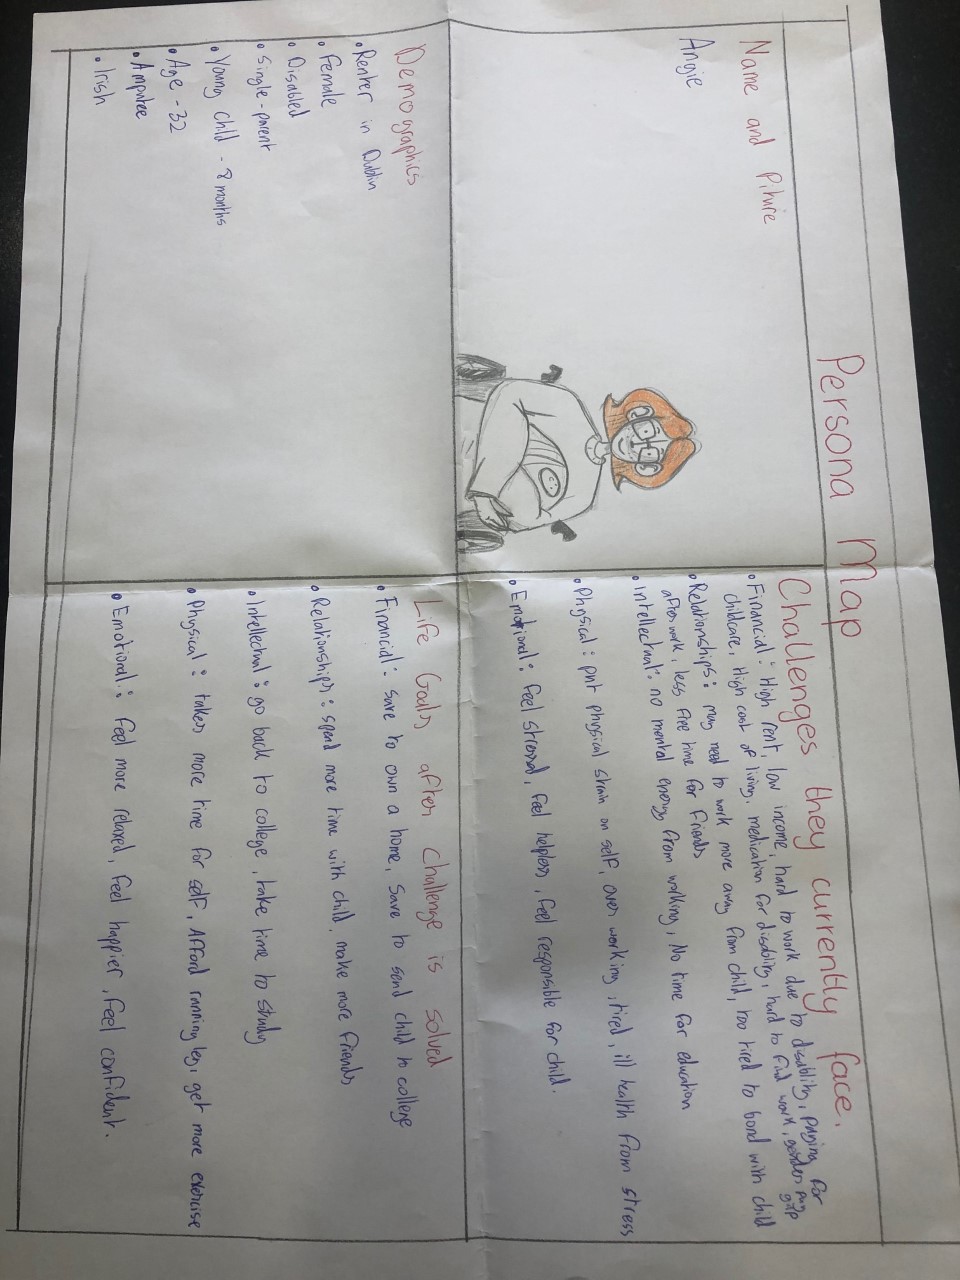 Persona Map
Name and Piture
Angie
Challenges they currently face.
• Financial: High rent, low income, hard to work due to disablity, paying for
childcare, High cost of living, medication for disablity, hard to find work, gender pay
gap
• Relationships: may need to work more away from child, too tired to bond with child
after work, less free time for friends
• Intellectual: no mental energy from working, No time for education
• Physical: put physical strain on self, over working, tired, ill health from stress
• Emotional: feel stressed, feel helpless, feel responsible for child.
Demographics
• Renter in Dublin
• Female
• Disabled
• Single-parent
• Young child - 8 months
• Age - 32
• Amputee
• Irish
Life Goals after challenge is solved
• Financial: save to own a home, Save to send child to college
• Relationships: spend more time with child, make more friends
• Intellectual: go back to college, take time to study
• Physical: takes more time for self, Afford running leg, get more exercise
• Emotional: feel more relaxed, feel happier, feel confident.